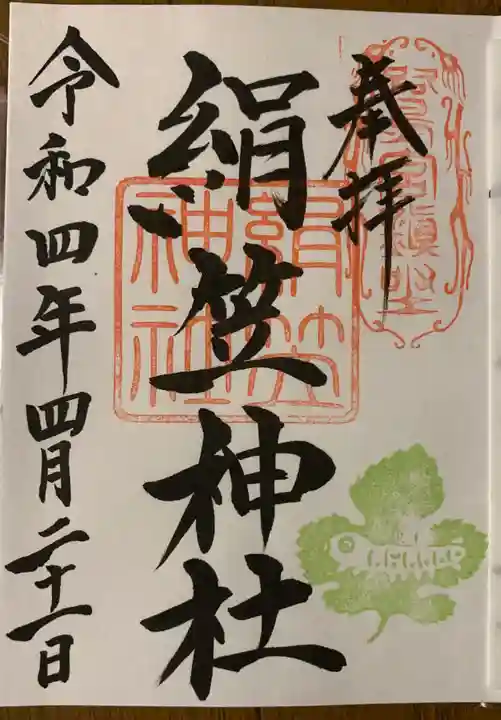 奉拝
絹笠神社
絹笠神社
令和四年四月二十一日